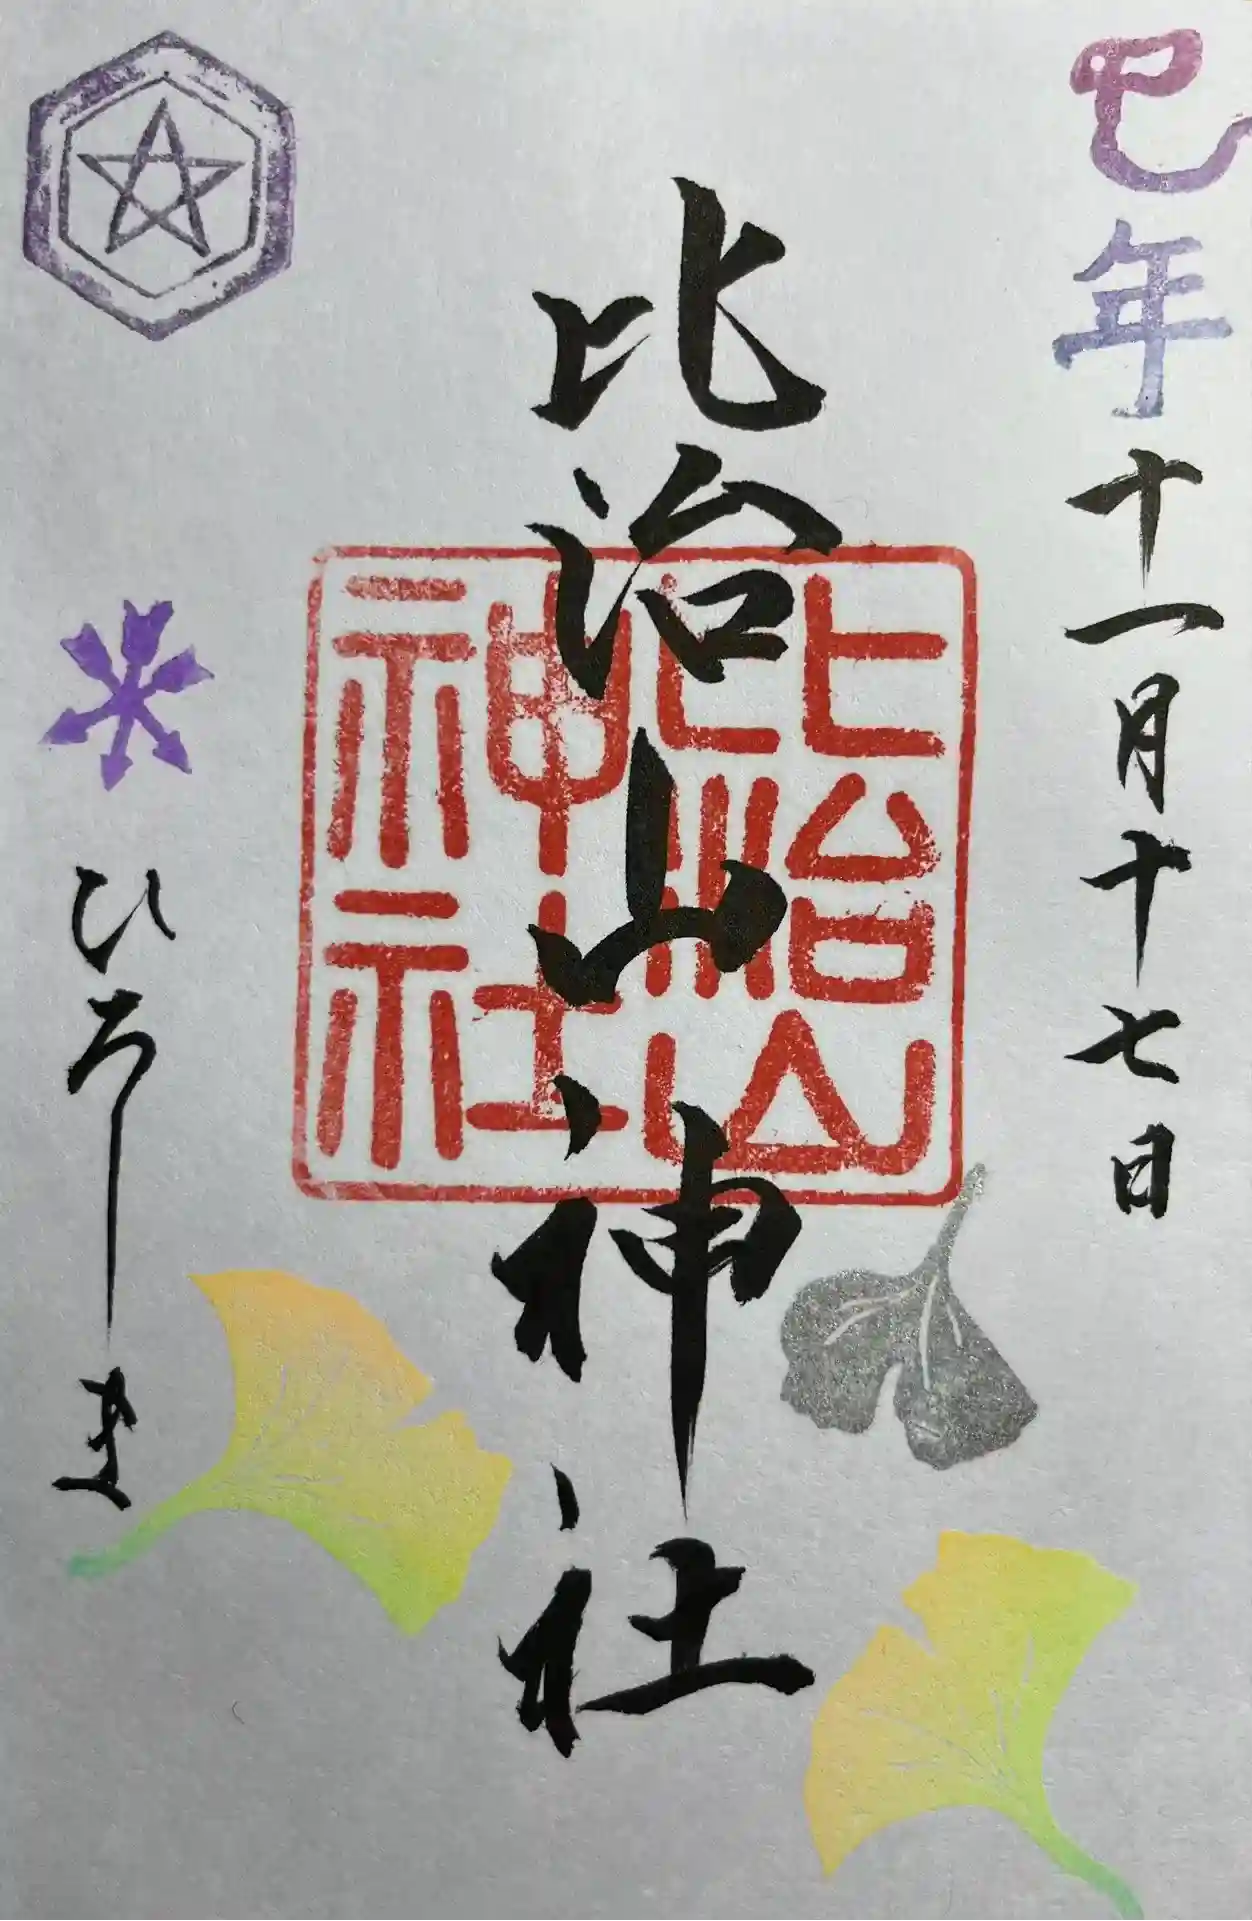 巳年十一月十七日
比治山神社
比治山
神社
ひろしま